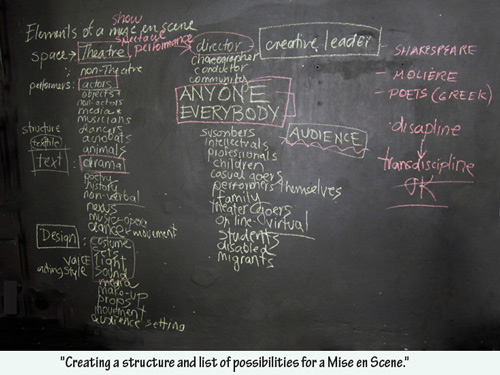 show
Elements of a mise en scene
spectacle
space → Theatre performance
: non-Theatre
performers: actors
objects
non-actors
media
musicians
dancers
acrobats
animals
structure
textile
text
drama
poetry
history
non-verbal
news
music-opera
dance movement
Design
costume
sets
light
sound
voice
acting style
media
make-up
props
movement
audience setting
director
choreographer
conductor
community
creative leader
ANYONE
EVERYBODY
AUDIENCE
intellectuals
professionals
children
casual goers
performers themselves
family
theater goers
on line-virtual
students
disabled
migrants
- SHAKESPEARE
- MOLIÈRE
- POETS (GREEK)
disapline
transdiscipline
"Creating a structure and list of possibilities for a Mise en Scene."